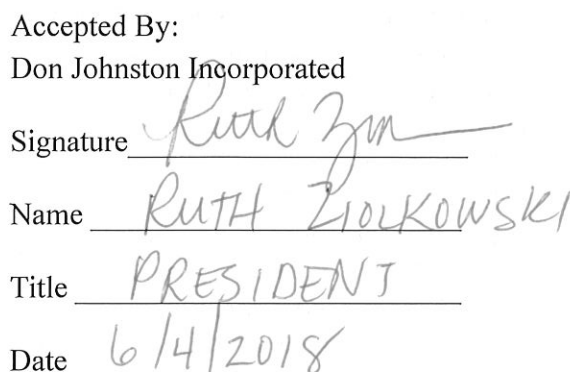 Accepted By:
Don Johnston Incorporated
Signature Ruth
Name RUTH ZIOLKOWSKI
Title PRESIDENT
Date 6/4/2018